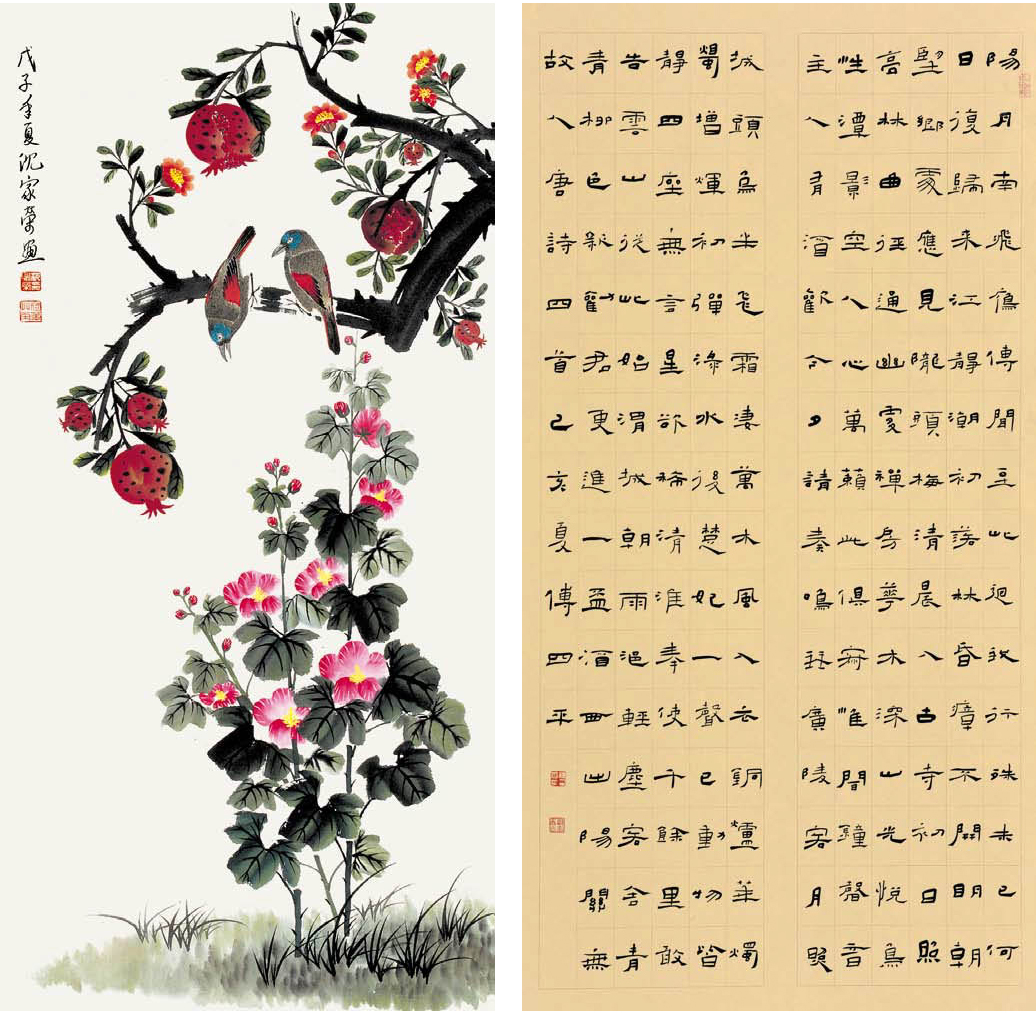 戊子年夏沈家榮畫
陽月南飛鴈傳聞至此迴我行殊未已何
日復歸來江靜潮初落林昏瘴不開明朝
望鄉處應見隴頭梅清晨入古寺初日照
高林曲徑通幽處禪房華木深山光悅鳥
性潭影空人心萬籟此俱寂惟聞鐘聲音
主人有酒歡今夕請奏鳴琴廣陵客月照
城頭烏半飛霜淒萬木風入衣銅鑪華燭
燭增輝初彈淥水後楚妃一聲已動物皆
靜四座無言星欲稀清淮奉使千餘里敢
告雲山從此始渭城朝雨浥輕塵客舍青
青柳色新勸君更進一盃酒西出陽關無
故人唐詩四首己亥夏傳四平